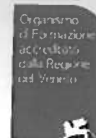 Organismo
di Formazione
accreditato
dalla Regione
del Veneto